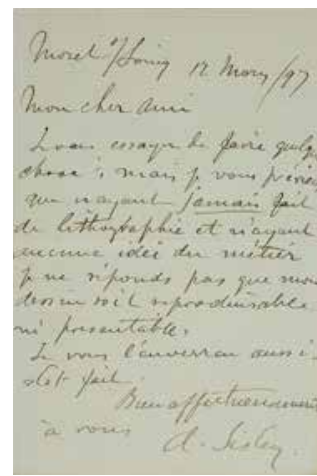 Moret s/Loing 12 Mars/97
Mon cher ami
Je vais essayer de faire quelque
chose ; mais je vous préviens
que n'ayant jamais fait
de lithographie et n'ayant
aucune idée du métier
je ne réponds pas que mon
dessin soit reproduisible
ni présentable.
Je vous l'enverrai aussi-
tôt fait.
Bien affectueusement
à vous
A. Sisley.